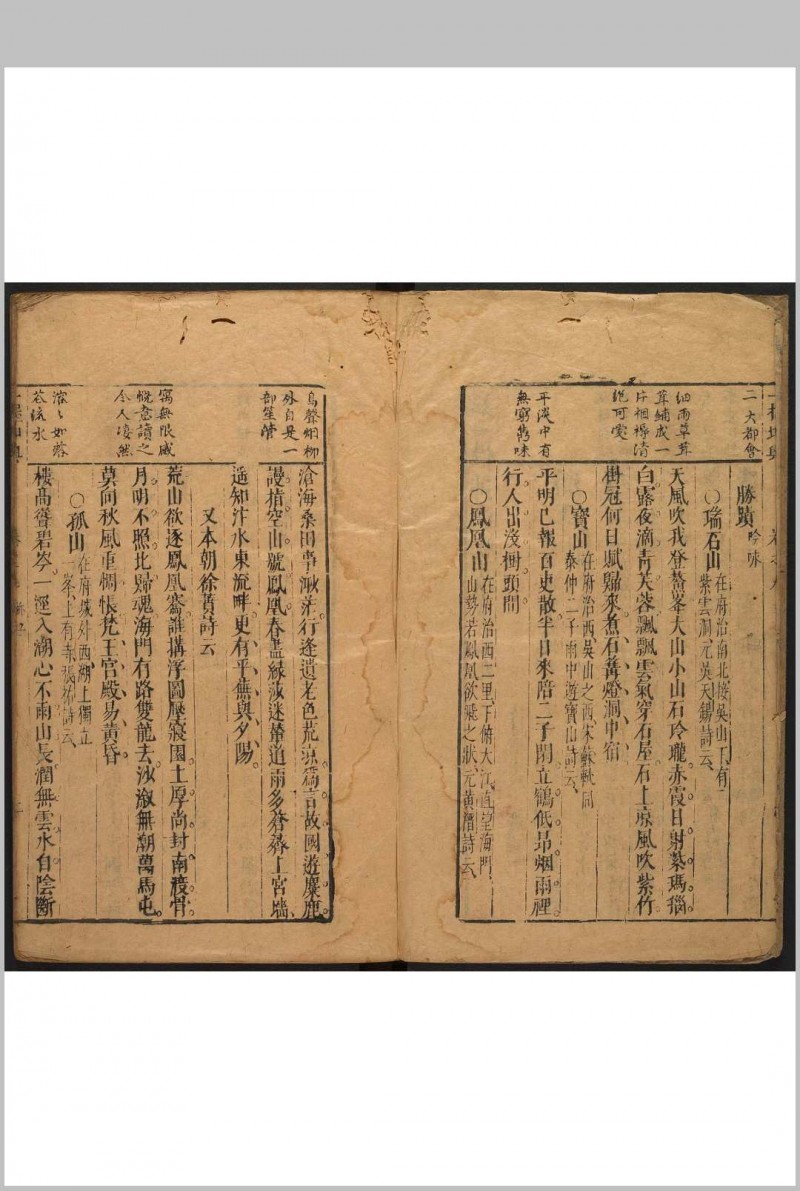 二大都會
勝蹟吟咏
○瑞石山在府治南北接吳山下有
紫雲洞元吳天錫詩云
細雨草茸
茸鋪成一
片個裡清
絕可愛
天風吹我登鰲峯大山小山石玲瓏赤霞日射紫瑪瑙
白露夜滴青芙蓉飄飄雲氣穿石屋石上凉風吹紫竹
掛冠何日賦歸來煮石篝燈洞中宿
○寶山在府治西吳山之西宋蘇軾同
秦仲二子雨中遊寶山詩云
平淡中有
無窮雋味
平明已報百吏散半日來陪二子閒立鶴低昂烟雨裡
行人出沒樹頭間
○鳳凰山在府治西二里下俯大江直望海門
山勢若鳳凰欲飛之狀元黃溍詩云
鳥聲烟柳
外自是一
部笙簧
滄海桑田事渺茫行逢遺老色荒凉為言故國遊麋鹿
謾指空山號鳳凰春盡綠莎迷輦道雨多蒼蘚上宮墻
遥知汴水東流畔更有平蕪與夕陽
又本朝徐賁詩云
寓無限感
慨意讀之
令人凄然
荒山欲逐鳳凰騫誰搆浮圖壓寢園土厚尚封南渡骨
月明不照北歸魂海門有路雙龍去沙溆無朝萬馬屯
莫向秋風重惆悵梵王宮殿易黃昏
○孤山在府城外西湖上獨立
一峯上有寺張祐詩云
溶溶如落
花流水
樓高聳碧岑一逕入湖心不雨山長潤無雲水自陰斷